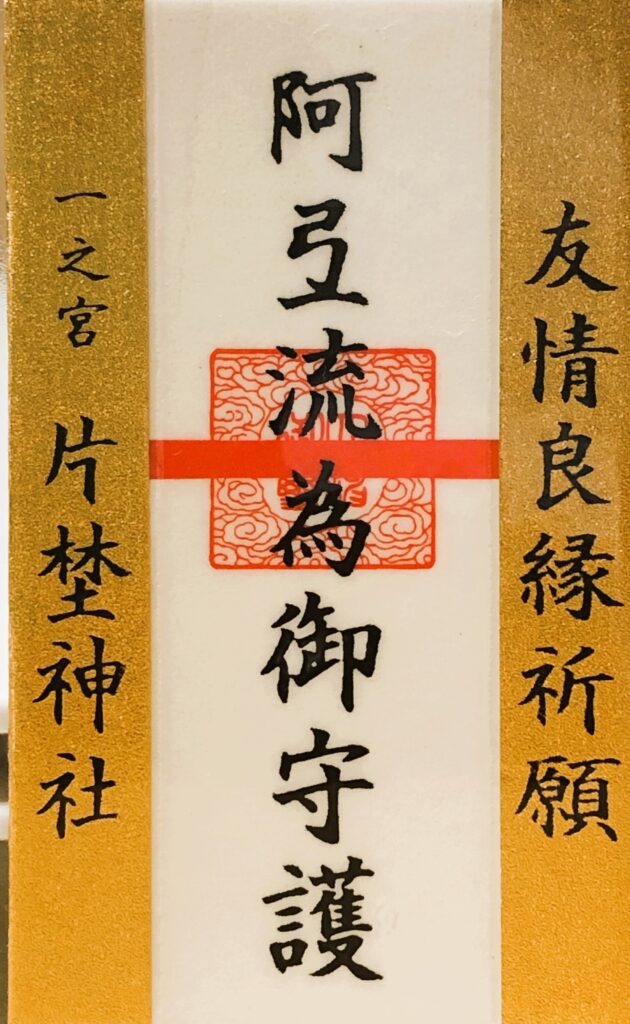 友情良縁祈願
阿弖流為御守護
一之宮 片埜神社